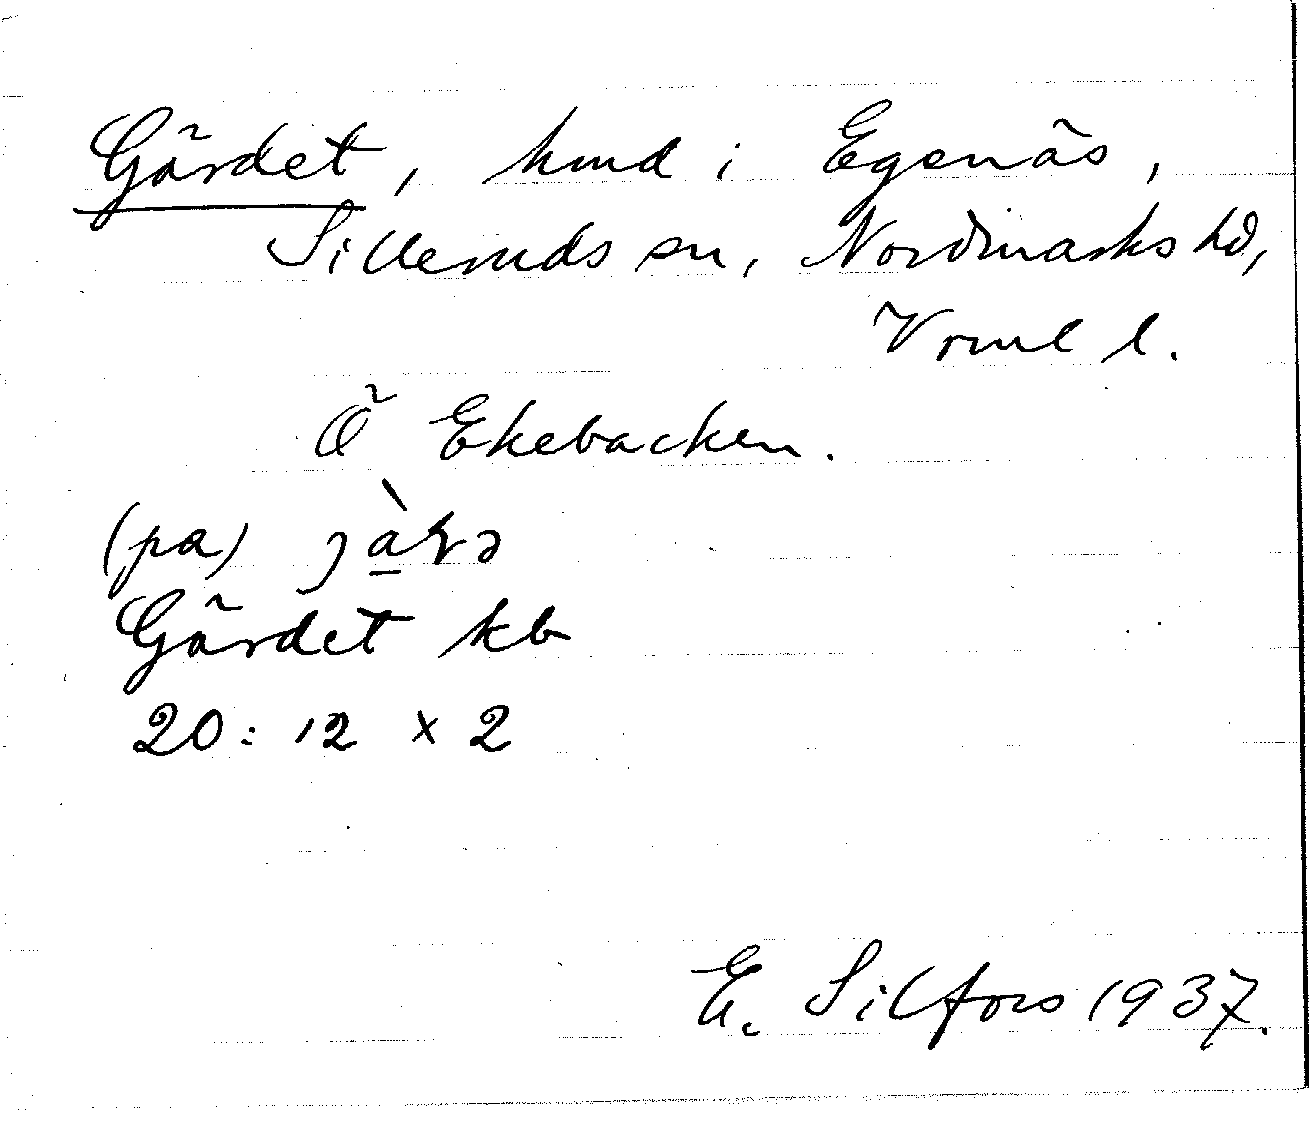 Gärdet, hmd i Egenäs,
Silleruds sn, Nordmarks hd,
Vrml l.
Ö Ekebacken.
(pa)
Gärdet kb
20: 12 × 2
E. Silfors 1937.